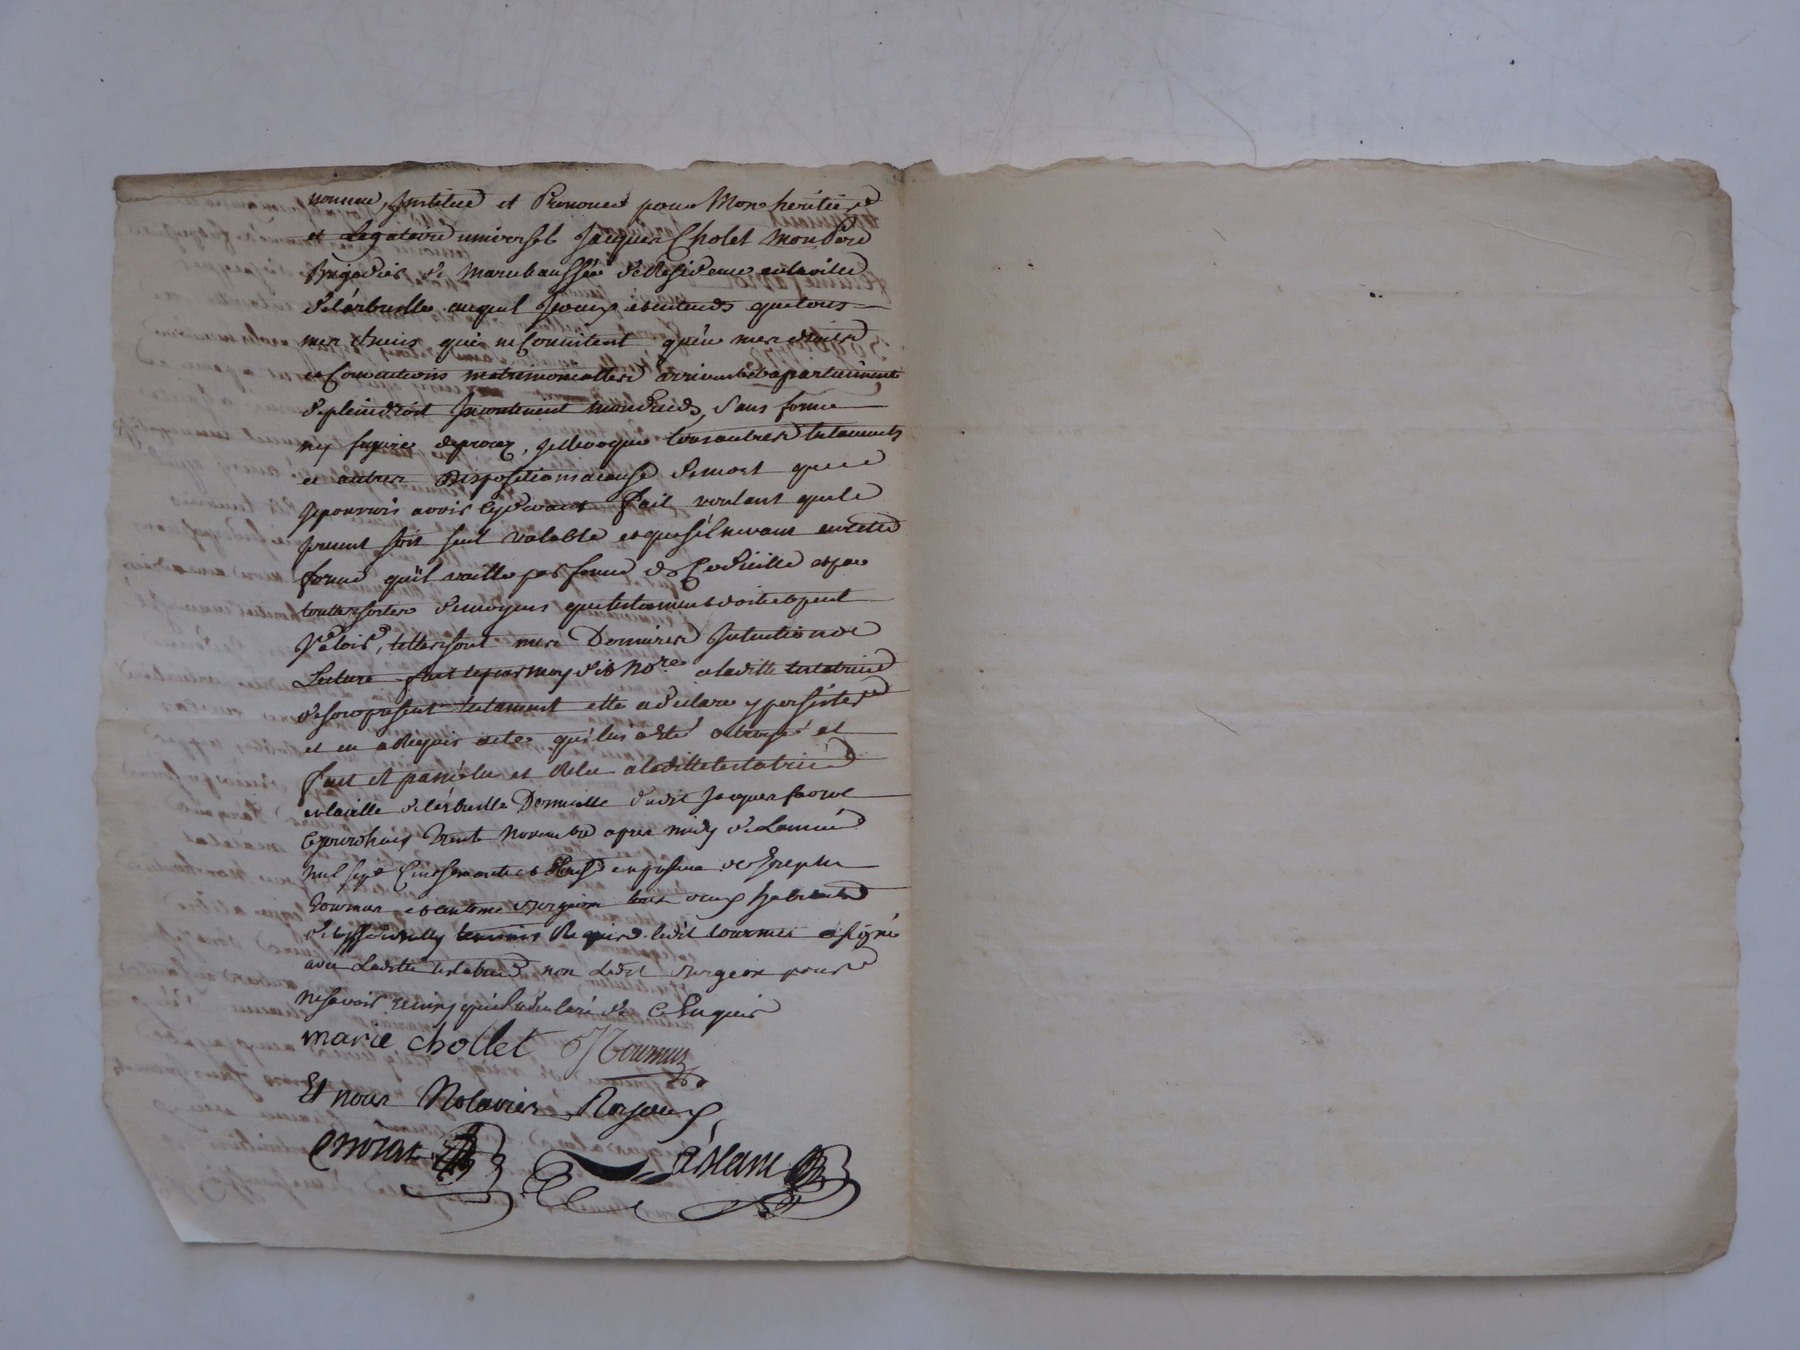 nomme, Institue et Prononce pour Mon heritiere
et Legataire universel Jacques Cholet mon Pere
brigadier de Marechaussée de Residence en la ville
auquel Je veux et entends que tous
mes biens qui ne Concistent qu'en mes droits
et Conventions matrimonialles arrivent et apartiennent
de plein droit Incontinent mon deces, sans forme
ny figure de procez, Je Revoque tous autres testaments
et autres Dispositions a cause de mort que
Je pourrois avoir cy devant fait voulant que le
present soit seul valable et que s'il ne vaut en cette
forme qu'il vaille par forme de Codicille et par
touttes sortes de moyens que testament doit et peut
valoir, telles sont mes Dernieres Intentions
Lecture fait par moy dit Nore a laditte testatrice
de son present testament elle a declaré y persister
et en a Requis acte qui lui a été octroyé et
fait et passé lu et Relu a laditte testatrice
en la ville Domicille dudit Jacques
ce jourdhuy trente Novembre apres midy de L'année
mil sept Cinq en presence de Joseph
tournus et antoine Surgeon tous deux habitants
temoins Requis ledit tournus a signé
avec Laditte testatrice non Ledit Surgeon pour
ne savoir ainsy qu'il a declaré de ce Enquis
marie chollet J tournus
Et nous Notaires Royaux